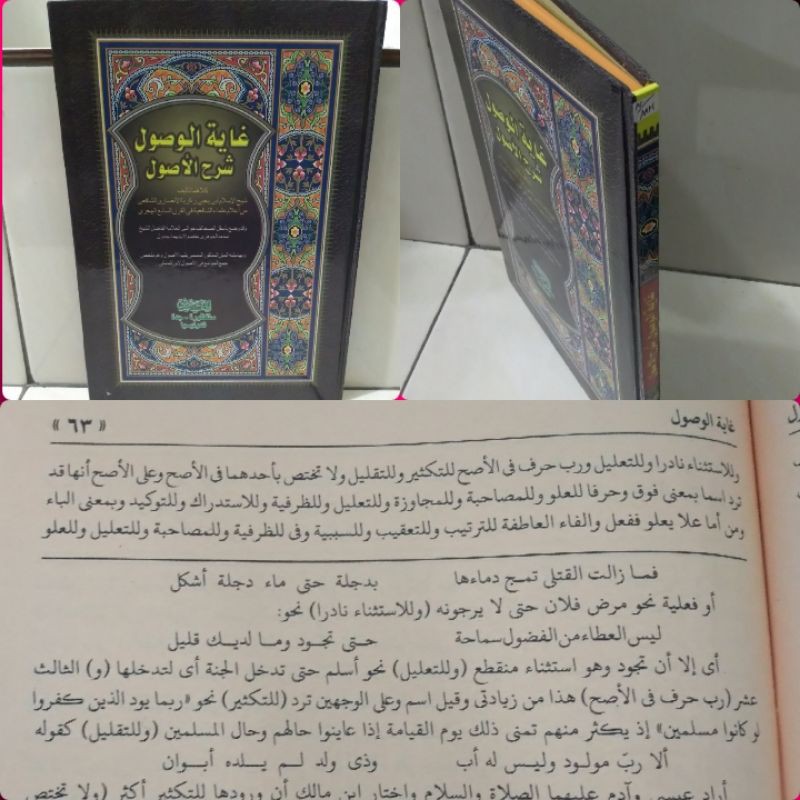 غاية الوصول
شرح الأصول
كلاهما تأليف
شيخ الإسلام أبى يحيى زكريا الأنصارى الشافعى
من أعلام علماء الشافعية فى القرن السابع الهجرى
غاية الوصول
شرح الأصول
غاية الوصول
« ٦٣ »
وللاستثناء نادرا وللتعليل ورب حرف فى الأصح للتكثير وللتقليل ولا تختص بأحدهما فى الأصح وعلى الأصح أنها قد
ترد اسما بمعنى فوق وحرفا للعلو وللمصاحبة وللمجاوزة وللتعليل وللظرفية وللاستدراك وللتوكيد وبمعنى الباء
ومن أما علا يعلو ففعل والفاء العاطفة للترتيب وللتعقيب وللسببية وفى للظرفية وللمصاحبة وللتعليل وللعلو
فما زالت القتلى تمج دماءها بدجلة حتى ماء دجلة أشكل
أو فعلية نحو مرض فلان حتى لا يرجونه (وللاستثناء نادرا) نحو:
ليس العطاء من الفضول سماحة حتى تجود وما لديك قليل
أى إلا أن تجود وهو استثناء منقطع (وللتعليل) نحو أسلم حتى تدخل الجنة أى لتدخلها (و) الثالث
عشر (رب حرف فى الأصح) هذا من زيادتى وقيل اسم وعلى الوجهين ترد (للتكثير) نحو «ربما يود الذين كفروا
لو كانوا مسلمين» إذ يكثر منهم تمنى ذلك يوم القيامة إذا عاينوا حالهم وحال المسلمين (وللتقليل) كقوله
ألا ربّ مولود وليس له أب وذى ولد لم يلده أبوان
أراد عيسى وآدم عليهما الصلاة والسلام واختار ابن مالك أن ورودها للتكثير أكثر (ولا تختص